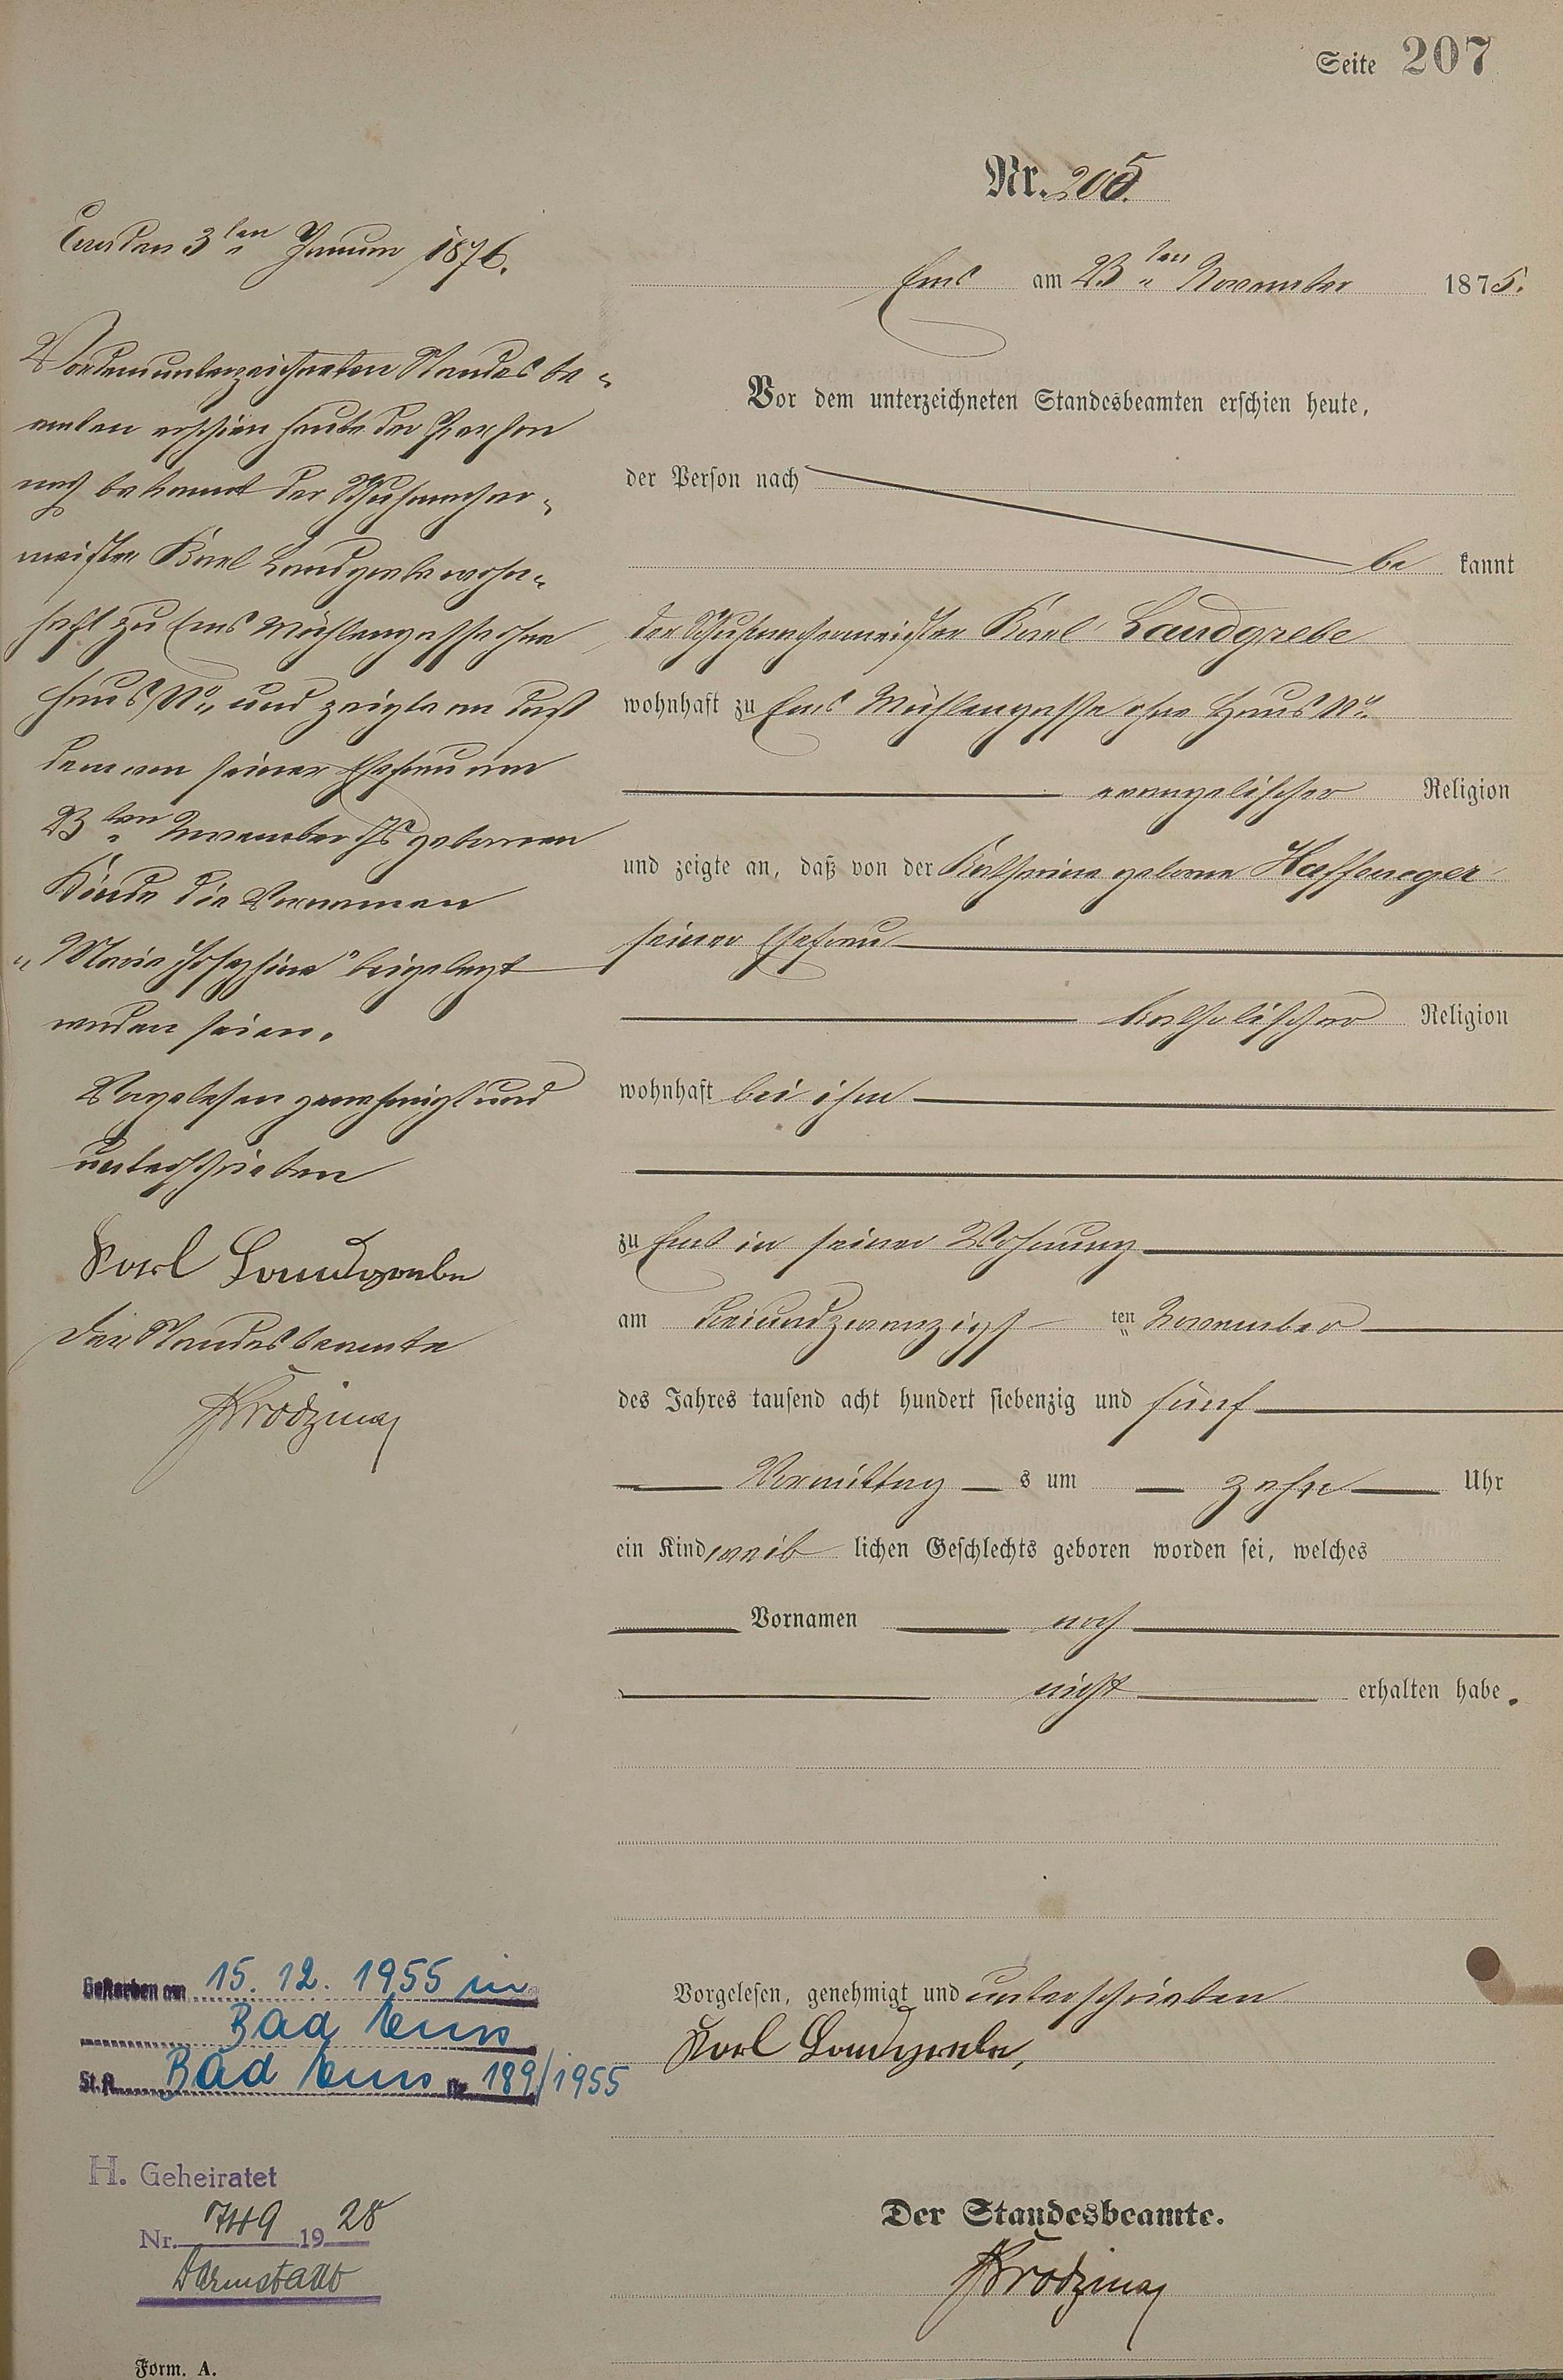 Seite 207
Nr. 205.
Ems am 23ten November 1875.
Vor dem unterzeichneten Standesbeamten erschien heute,
der Person nach
be kannt
der Schuhmachermeister Karl Landgrebe
wohnhaft zu Ems Mühlengasse ohne Haus No.
evangelischer Religion
und zeigte an, daß von der Katharina geborne Haffeneger
seiner Ehefrau
katholischer Religion
wohnhaft bei ihm
zu Ems in seiner Wohnung
am dreiundzwanzigst ten November
des Jahres tausend acht hundert siebenzig und fünf
Vormittag s um zehn Uhr
ein Kind weib lichen Geschlechts geboren worden sei, welches
Vornamen noch
nicht erhalten habe.
Vorgelesen, genehmigt und unterschrieben
Karl Landgrebe,
Der Standesbeamte.
Ems den 3ten Januar 1876.
Vor dem unterzeichneten Standesbe-
amten erschien heute der Person
nach bekannt der Schuhmacher-
meister Karl Landgrebe wohn-
haft zu Ems Mühlengasse ohne
Haus No. und zeigte an daß
dem von seiner Ehefrau am
23ten November 75 geborenen
Kinde die Vornamen
"Maria Josephine" beigelegt
worden seien.
Vorgelesen genehmigt und
unterschrieben
Karl Landgrebe
Der Standesbeamte
Gestorben am 15. 12. 1955 in
Bad Ems
St.A. Bad Ems Nr. 189/1955
H. Geheiratet
Nr. 749 1928
Darmstadt
Form. A.